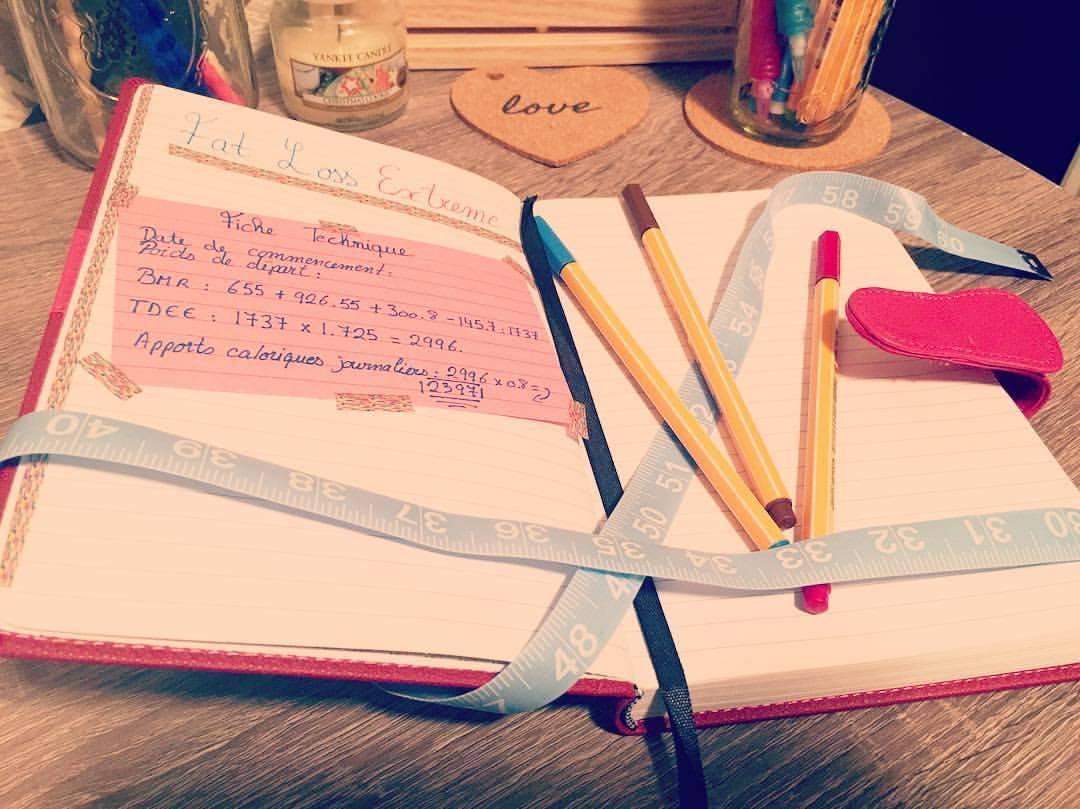 YANKEE CANDLE
love
Fat Loss Extreme
Fiche Technique
Date de commencement:
Poids de départ:
BMR : 655 + 926.55 + 300.8 - 145.7 : 1737
TDEE : 1737 x 1.725 = 2996.
Apports caloriques journaliers : 2996 x 0.8 =>
2397
58 59 60
54
51
50
48
40 39 38 37 36 35 34 33 32 31 30